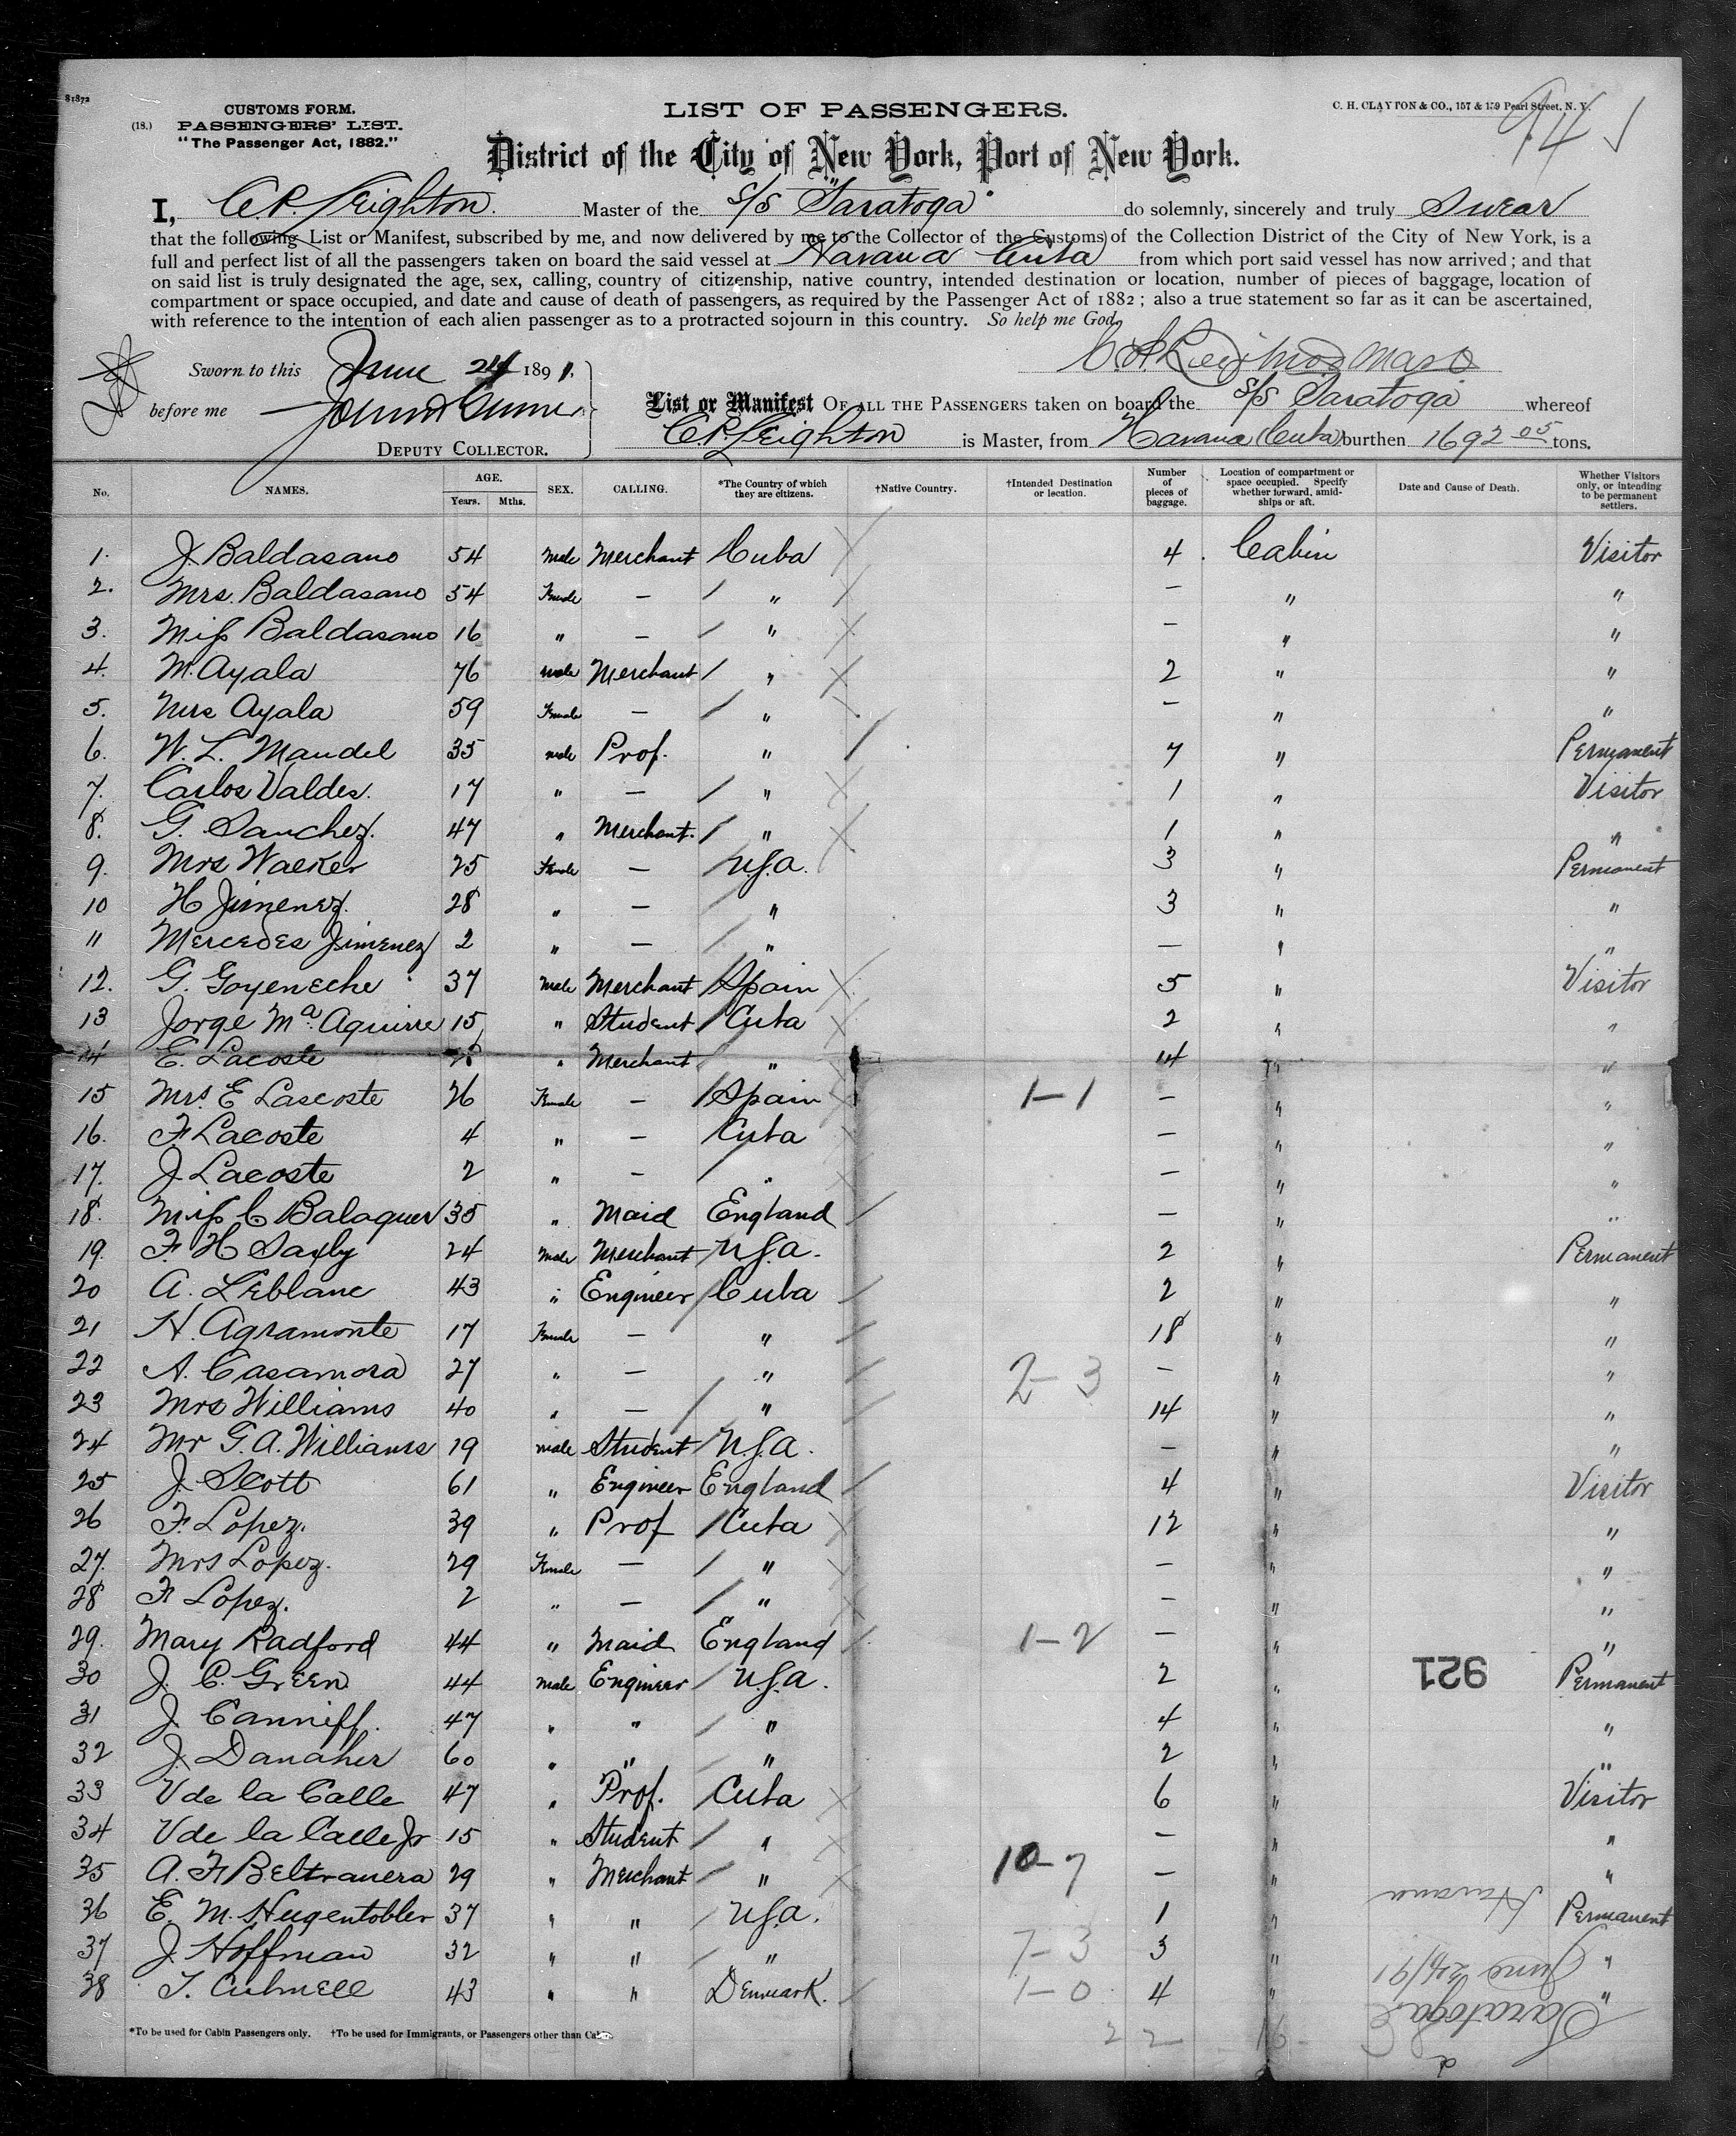 81872
CUSTOMS FORM.
(18.) PASSENGERS' LIST.
"The Passenger Act, 1882."
LIST OF PASSENGERS.
C. H. CLAYTON & CO., 157 & 159 Pearl Street, N. Y.
District of the City of New York, Port of New York.
I, C. P. Leighton. Master of the S/S "Saratoga" do solemnly, sincerely and truly Swear
that the following List or Manifest, subscribed by me, and now delivered by me to the Collector of the Customs of the Collection District of the City of New York, is a
full and perfect list of all the passengers taken on board the said vessel at Havana Cuba from which port said vessel has now arrived; and that
on said list is truly designated the age, sex, calling, country of citizenship, native country, intended destination or location, number of pieces of baggage, location of
compartment or space occupied, and date and cause of death of passengers, as required by the Passenger Act of 1882; also a true statement so far as it can be ascertained,
with reference to the intention of each alien passenger as to a protracted sojourn in this country. So help me God.
Sworn to this June 24 1891.
before me
DEPUTY COLLECTOR.
List or Manifest OF ALL THE PASSENGERS taken on board the S/S Saratoga whereof
C P Leighton is Master, from Havana (Cuba) burthen 1692 05 tons.
No. NAMES. AGE. Years. Mths. SEX. CALLING. *The Country of which they are citizens. †Native Country. †Intended Destination or location. Number of pieces of baggage. Location of compartment or space occupied. Specify whether forward, amidships or aft. Date and Cause of Death. Whether Visitors only, or intending to be permanent settlers.
1. J. Baldasano 54 Male Merchant Cuba 4 Cabin Visitor
2. Mrs. Baldasano 54 Female — " — " "
3. Miss Baldasano 16 " — " — " "
4. M. Ayala 76 Male Merchant " 2 " "
5. Mrs Ayala 59 Female — " — " "
6. W. L. Maudel 35 Male Prof. " 7 " Permanent
7. Carlos Valdes. 17 " — " 1 " Visitor
8. G. Sanchez. 47 " Merchant. " 1 " "
9. Mrs Walker 25 Female — U.S.a. 3 " Permanent
10 H Jimenez. 28 " — " 3 " "
11 Mercedes Jimenez 2 " — " — " "
12. G. Goyeneche 37 Male Merchant Spain 5 " Visitor
13 Jorge Ma. Aguirre 15 " Student Cuba 2 " "
14 E. Lacoste " Merchant " 14 " "
15 Mrs. E Lascoste 26 Female — Spain 1-1 — " "
16. F. Lacoste 4 " — Cuba — " "
17. J. Lacoste 2 " — " — " "
18. Miss C Balaguer 35 " Maid England — " "
19. F. H Saxby 24 Male Merchant U.S.a. 2 " Permanent
20 A. Leblanc 43 " Engineer Cuba 2 " "
21 H. Agramonte 17 Female — " 18 " "
22 A. Casamora 27 " — " 2-3 — " "
23 Mrs Williams 40 " — " 14 " "
24 Mr G. A. Williams 19 Male Student U.S.a. — " "
25 J. Scott 61 " Engineer England 4 " Visitor
26 F. Lopez. 39 " Prof Cuba 12 " "
27. Mrs Lopez. 29 Female — " — " "
28 F. Lopez. 2 " — " — " "
29. Mary Radford 44 " Maid England 1-2 — " "
30 J. C. Green 44 Male Engineer U.S.a. 2 " 921 Permanent
31 J. Canniff. 47 " " " 4 " "
32 J. Danaher 60 " " " 2 " "
33 V de la Calle 47 " Prof. Cuba 6 " Visitor
34 V de la Calle Jr 15 " Student " — " "
35 A. F. Beltranera 29 " Merchant " 10-7 — " "
36 E. M. Hugentobler 37 " " U.S.a. 1 " Havana Permanent
37 J. Hoffman 32 " " " 7-3 3 " June 24/91 "
38 T. Culmell 43 " " Denmark. 1-0 4 " Saratoga "
22 16
*To be used for Cabin Passengers only. †To be used for Immigrants, or Passengers other than Cabin.